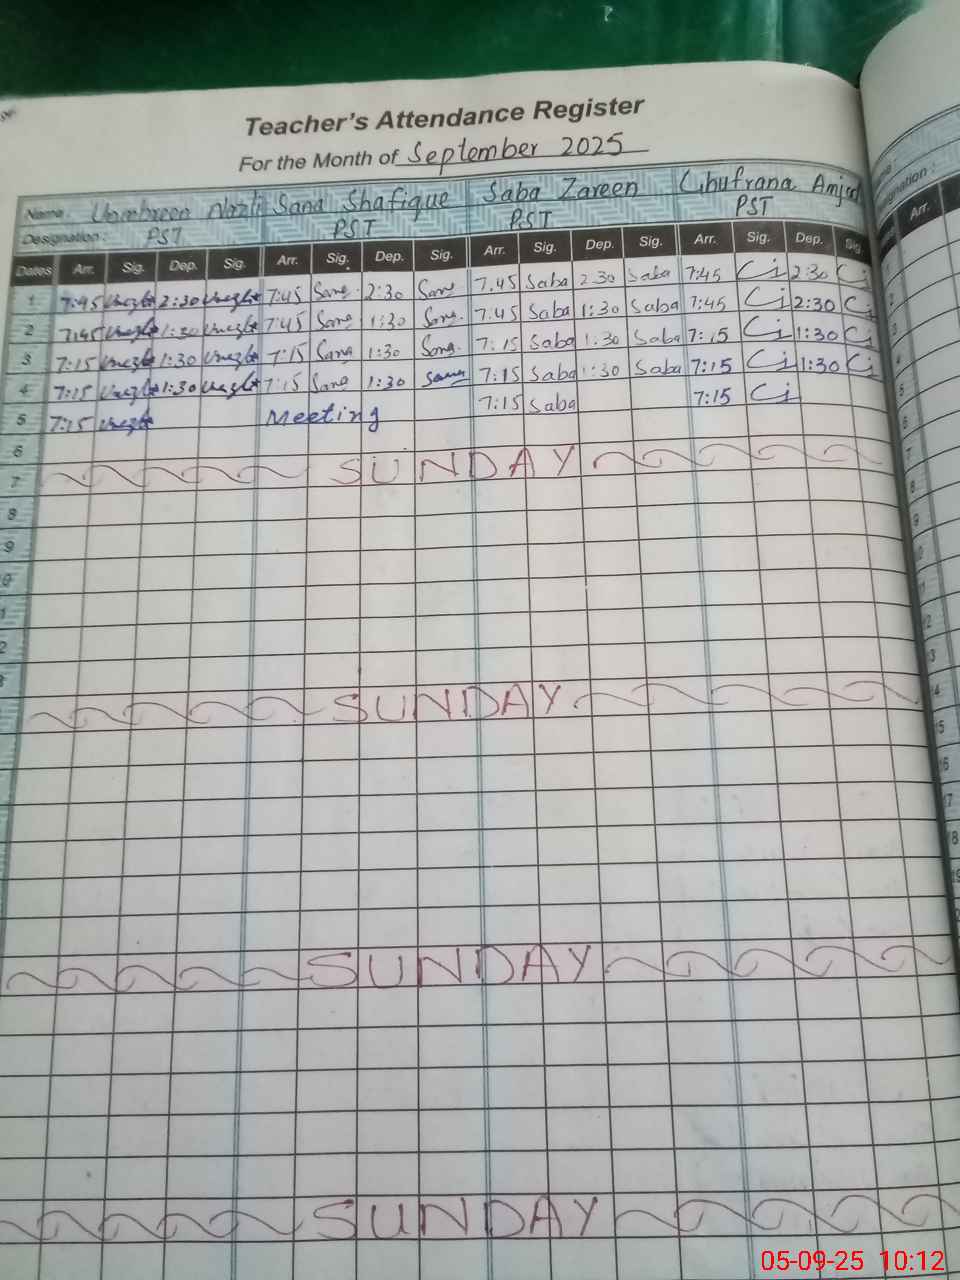 Teacher's Attendance Register
For the Month of September 2025
Name: Nazli Sana Shafique Saba Zareen Ghufrana Amjad
Designation: PST PST PST PST
Dates Arr. Sig. Dep. Sig. Arr. Sig. Dep. Sig. Arr. Sig. Dep. Sig. Arr. Sig. Dep. Sig.
1 7:45 2:30 7:45 Sana 2:30 Sana 7.45 Saba 2 30 Saba 7:45 2:30
2 7:45 1:30 7:45 Sana 1:30 Sana. 7.45 Saba 1:30 Saba 7:45 2:30
3 7:15 1:30 7:15 Sana 1:30 Sana. 7:15 Saba 1.30 Saba 7:15 1:30
4 7:15 1:30 7:15 Sana 1:30 Sana 7:15 Saba 1:30 Saba 7:15 1:30
5 7:15 Meeting 7:15 Saba 7:15
6
7 SUNDAY
8
9
SUNDAY
SUNDAY
SUNDAY
Arr.
05-09-25 10:12